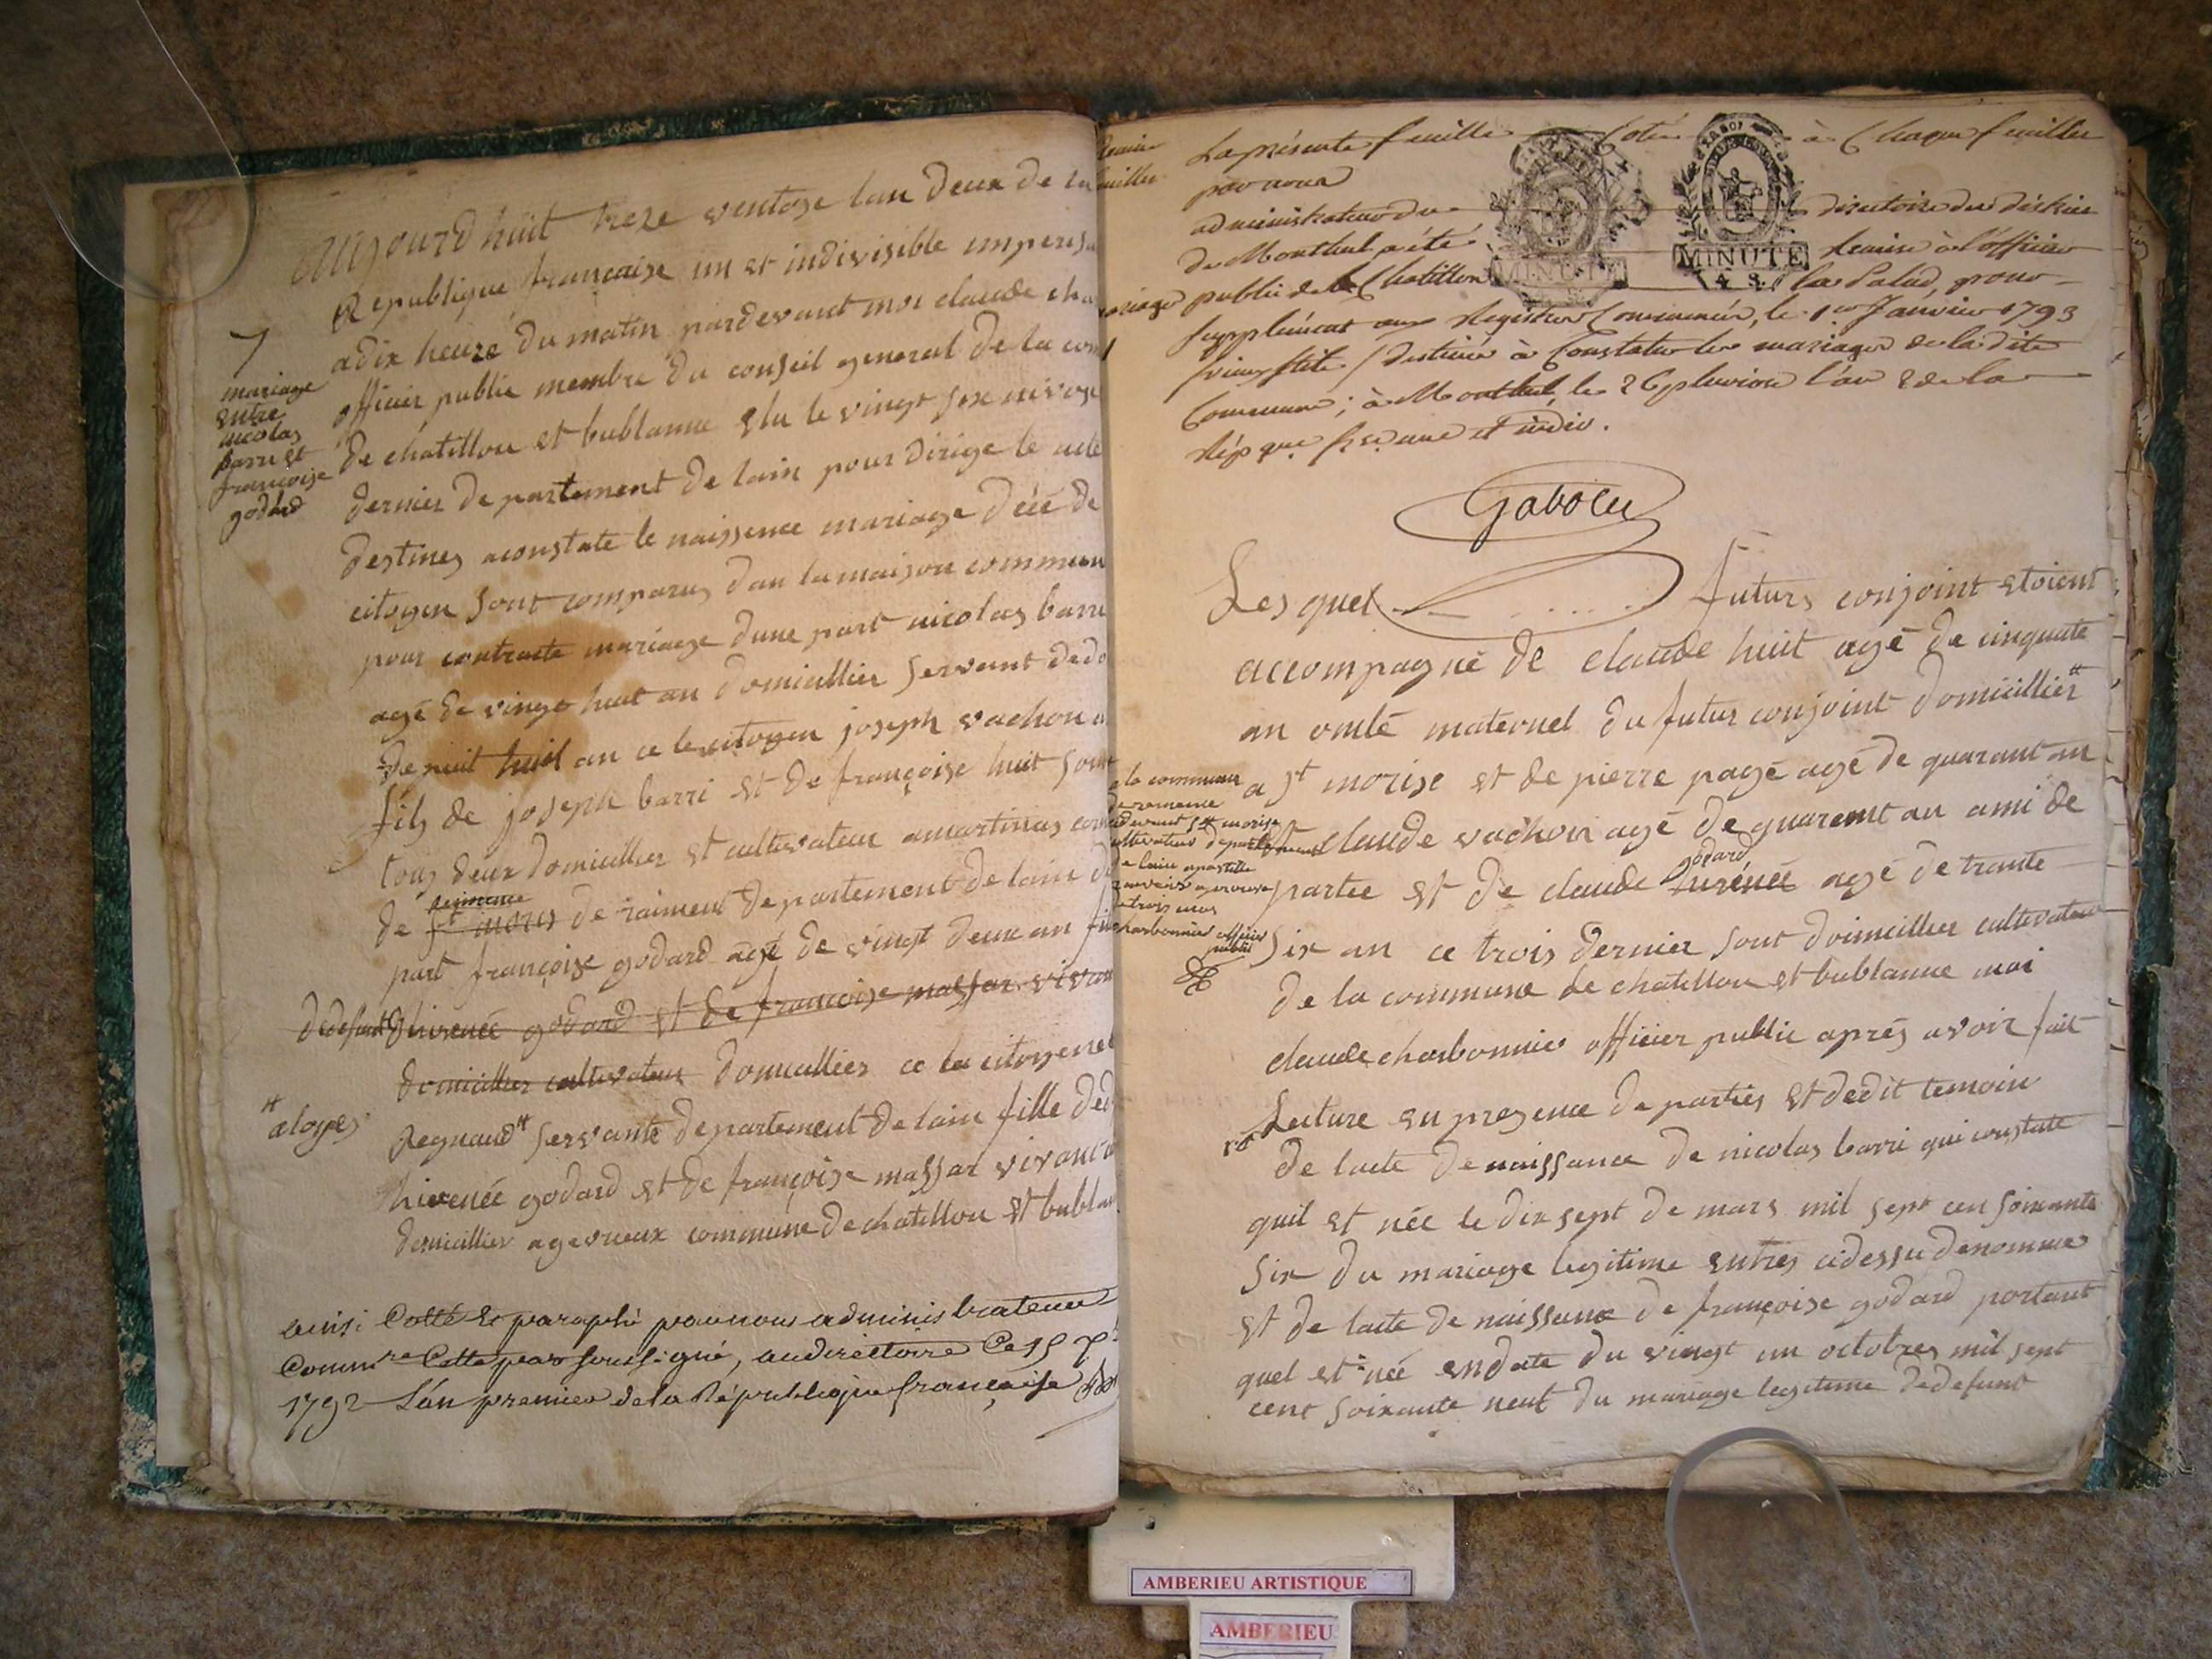 aujourd huit treze ventose lan deux de la
Republique française un et indivisible
adix heure du matin pardevant moi claude
officier public membre du conseil general de la
de chatillon et bublanne elu le vingt six nivose
dernier departement de lain pour dirige le acte
destines aconstate le naissence mariage décé de
citoyen sont comparus dan la maison commun
pour contracte mariage dune part nicolas barri
agé de vingt huit an domicillier servant
depuit huit an ce le citoyen joseph vachon
fils de joseph barri et de françoise huit sont
tous deux domicillier et cultivateur amartinas
de st moris de raimeus departement de lain
part françoise godard agé de vingt deux an
dedefunt hirénée godard et de françoise massar vivan
domicillier cultivateur domicillier ce la citoyene
Regnaud # servante departement de lain fille
hirenée godard et de françoise massar vivant
domicillier agevrieux commune de chatillon et bublan
7
mariage
entre
nicolas
barri et
françoise
godard
# aloyes
ainsi Cotté & paraphé par nous administrateur
Commre soussigné, audirectoire Ce 15
1792 L'an premier de la République française
La présente feuille Cotée à Chaque feuillet
par nous
administrateur du directoire du district
de Montluel a été remise à l'officier
public de Chatillon la Palud, pour
supplément aux Registres Commencés, le 1er Janvier 1793
vieux stile / destinée à Constater les mariages de la dite
Commune; à Montluel, le 26 pluviose l'an 2 de la
Rép que fse une et indiv.
MINUTE
MINUTE
4 S.
Les quel futurs conjoint etoient
accompagné de claude huit agé de cinquate
an oncle maternel du futur conjoint domicillier #
a st morise et de pierre pagé agé de quarant an
et claude vachon agé de quarent an ami de
partee et de claude hirénée godard agé de trante
six an ce trois dernier sont doimicillier cultivateur
de la commune de chatillon et bublanne moi
claude charbonnier officier public aprés avoir fait
Lecture en presence de parties et dedit temoin
de lacte de naissance de nicolas barri qui constate
quil et née le dix sept de mars mil sept cen soixante
six du mariage legitime entres cidessu denomme
et de lacte de naissance de françoise godard portant
quel et née endate du vingt un octobres mil sept
cent soixante neuf du mariage legitime dedefunt
la commune
st morise
de lain apostille
charbonnier officier
public
AMBERIEU ARTISTIQUE
AMBERIEU